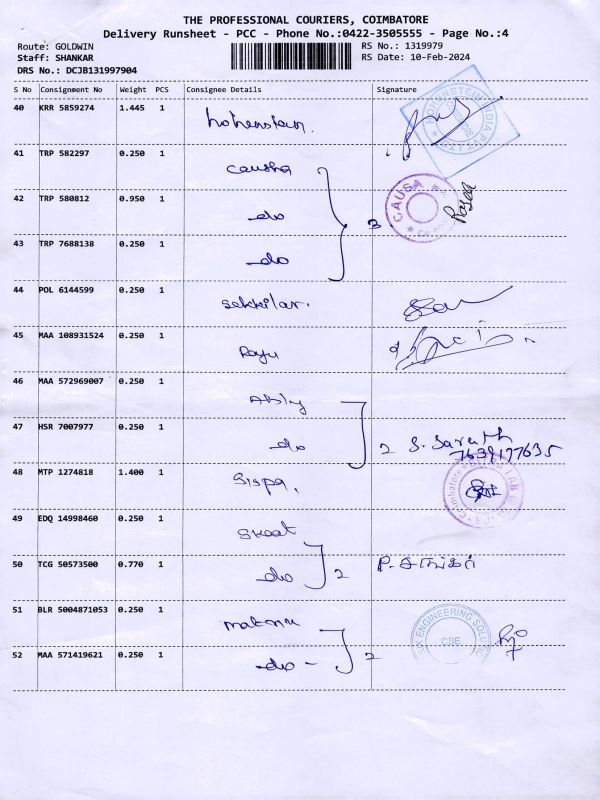 THE PROFESSIONAL COURIERS, COIMBATORE
Delivery Runsheet - PCC - Phone No.:0422-3505555 - Page No.:4
Route: GOLDWIN
RS No.: 1319979
Staff: SHANKAR
RS Date: 10-Feb-2024
DRS No.: DCJB131997904
S No Consignment No Weight PCS Consignee Details Signature
40 KRR 5859274 1.445 1 hohenstein.
41 TRP 582297 0.250 1
42 TRP 580812 0.950 1 do 3 CAUSA
43 TRP 7688138 0.250 1 do
44 POL 6144599 0.250 1 sekkilar.
45 MAA 108931524 0.250 1 Raju
46 MAA 572969007 0.250 1
47 HSR 7007977 0.250 1 do 2 S. Sarath
7639177635
48 MTP 1274818 1.400 1 Sispa. Coimbatore
49 EDQ 14998460 0.250 1
50 TCG 50573500 0.770 1 do 2
51 BLR 5004871053 0.250 1 ENGINEERING CBE
52 MAA 571419621 0.250 1 do - 2